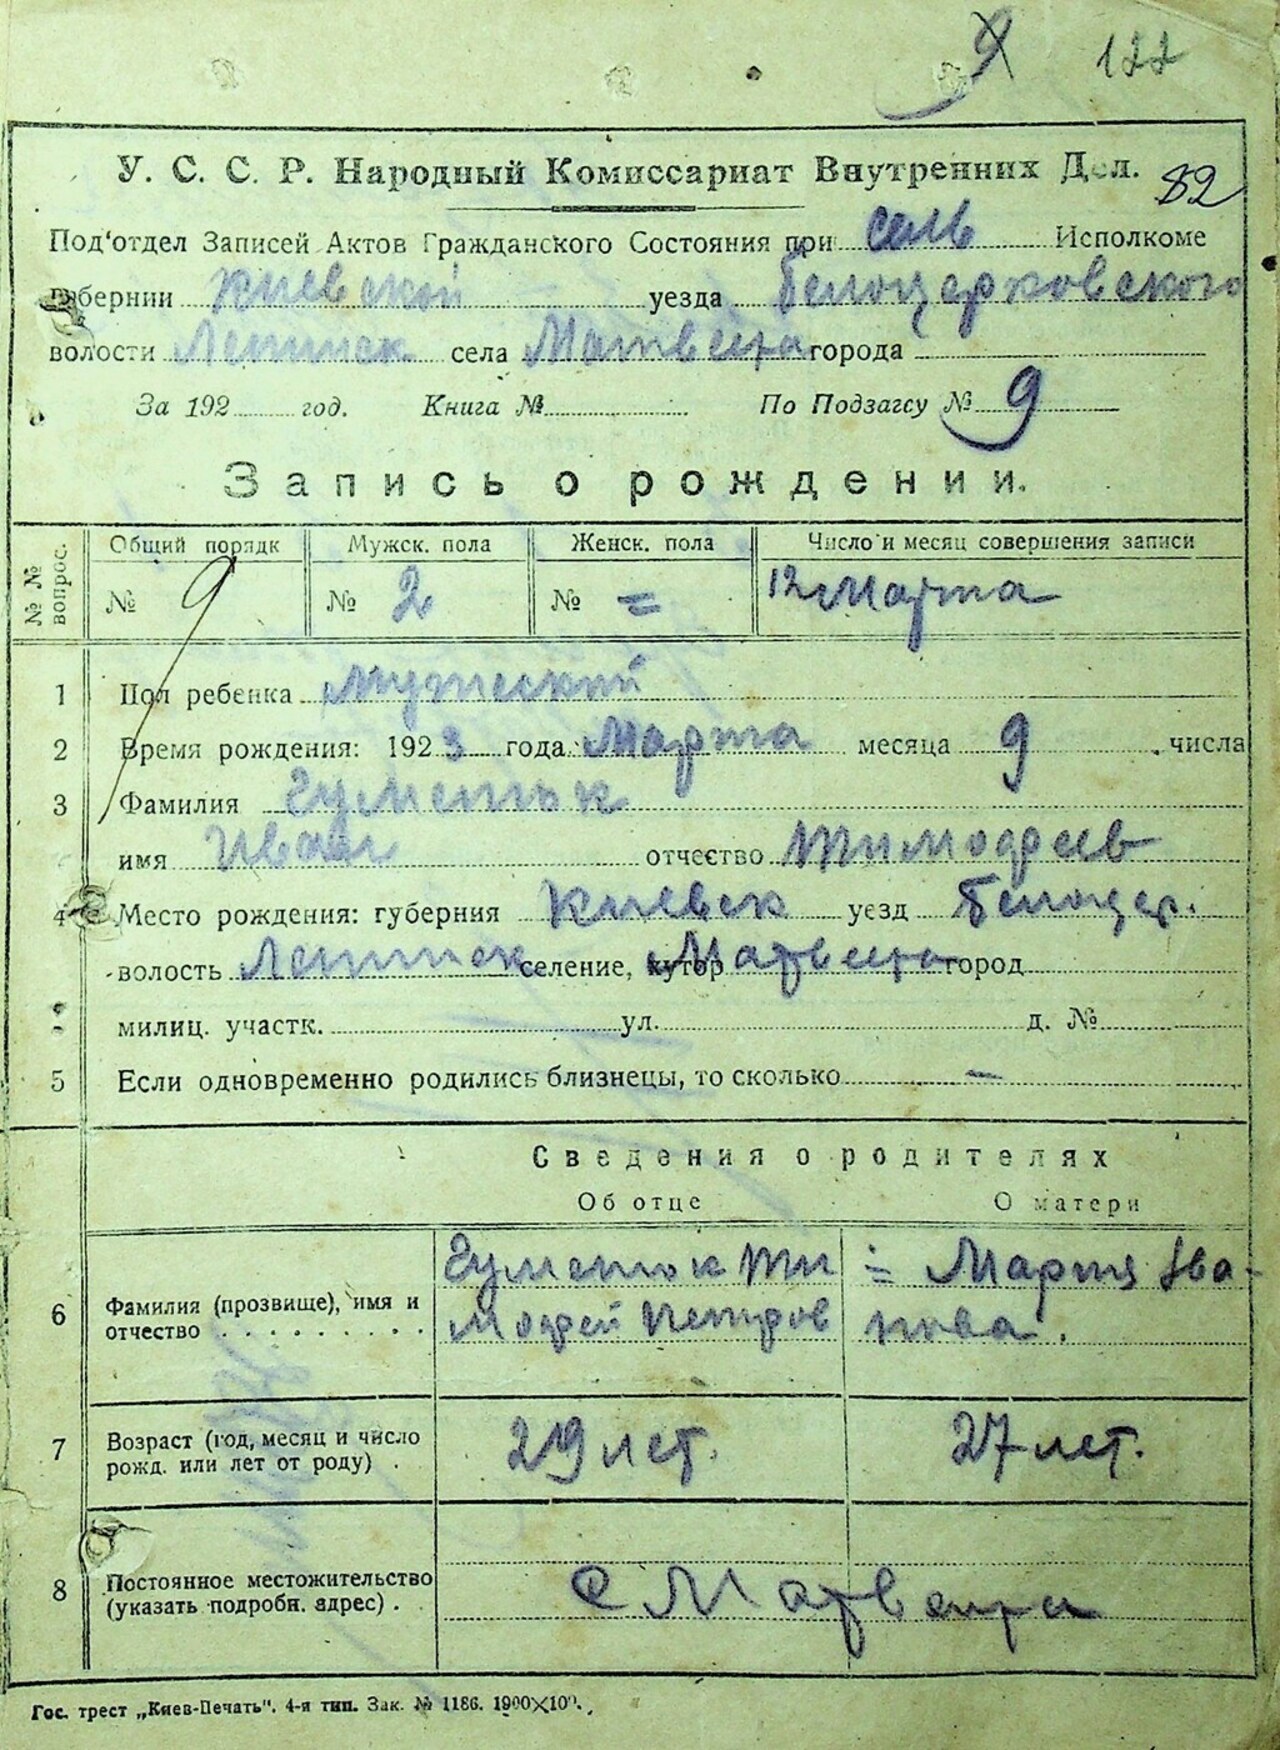 9 122
У. С. С. Р. Народный Комиссариат Внутренних Дел. 82
Под'отдел Записей Актов Гражданского Состояния при сель Исполкоме
губернии Киевской уезда Белоцерковского
волости Ленинск села Матвеиха города
За 192 год. Книга № По Подзагсу № 9
Запись о рождении.
№ № вопрос. Общий порядк Мужск. пола Женск. пола Число и месяц совершения записи
№ 9 № 2 № = 12 Марта
1 Пол ребенка Мужеский
2 Время рождения: 1923 года Марта месяца 9 числа
3 Фамилия Гуменюк
имя Иван отчество Тимофеев
4 Место рождения: губерния Киевск уезд Белоцер.
волость Ленинск селение, хутор Матвеиха город
милиц. участк. ул. д. №
5 Если одновременно родились близнецы, то сколько —
Сведения о родителях
Об отце О матери
6 Фамилия (прозвище), имя и отчество . . . . . . . . . . Гуменюк Ти
мофей Петров = Мария Ива-
нова.
7 Возраст (год, месяц и число рожд. или лет от роду) . 29 лет. 27 лет.
8 Постоянное местожительство (указать подробн. адрес) . с Матвеиха
Гос. трест „Киев-Печать". 4-я тип. Зак. № 1186. 1900×100.